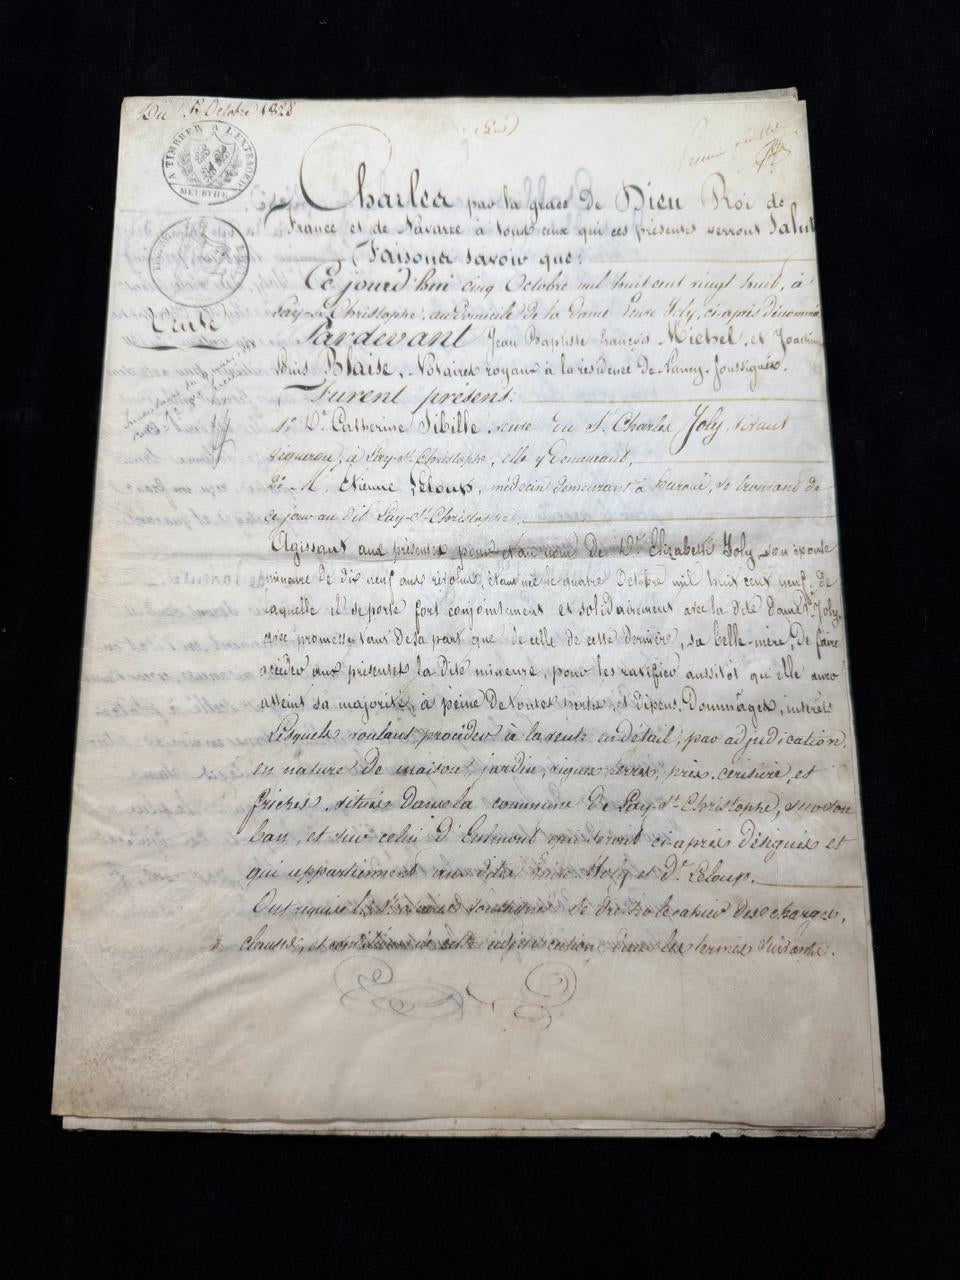 Du 5 Octobre 1828
A TIMBRER A L'EXTRAORD.
MEURTHE
Vente
Charles par la grace de Dieu Roi de
France et de Navarre à tous ceux qui ces présentes verront Salut
Faisons savoir que:
Ce jourd'hui cinq Octobre mil huit cent vingt huit, à
Lay-St-Christophe, au domicile de la Dame Veuve Joly, ci-après dénommée
Pardevant Jean Baptiste François Michel, et Joachim
Louis Blaise, Notaires royaux à la résidence de Nancy, soussignés.
Furent présens:
1° De Catherine Sibille, veuve du Sr Charles Joly, vivant
vigneron, à Lay-St-Christophe, elle y demeurant,
2° Mr Etienne Leloup, médecin demeurant à haroué, se trouvant de
ce jour au dit Lay-St-Christophe,
Agissant aux présentes pour et au nom de De Elizabeth Joly son épouse
mineure de dix neuf ans révolus, étant née le quatre Octobre mil huit cent neuf, de
laquelle il se porte fort conjointement et solidairement avec la dite dame Ve Joly,
avec promesse tant de sa part que de celle de cette dernière, sa belle-mère, de faire
accéder aux présentes la dite mineure, pour les ratifier aussitôt qu'elle aura
atteint sa majorité, à peine de toutes pertes, et dépens, Dommages, intérêts
Lesquels voulant procéder à la vente en détail, par adjudication,
en nature de maison, jardin, vignes, terres, prés, cerisière, et
friches, situés dans la commune de Lay-St-Christophe, sur son
ban, et sur celui d'Eulmont qui seront ci-après désignés et
qui appartiennent aux dites Joly et De Leloup.
Ont requis les Notaires soussignés de dresser le cahier des charges,
clauses, et conditions de cette adjudication dans les termes suivants.